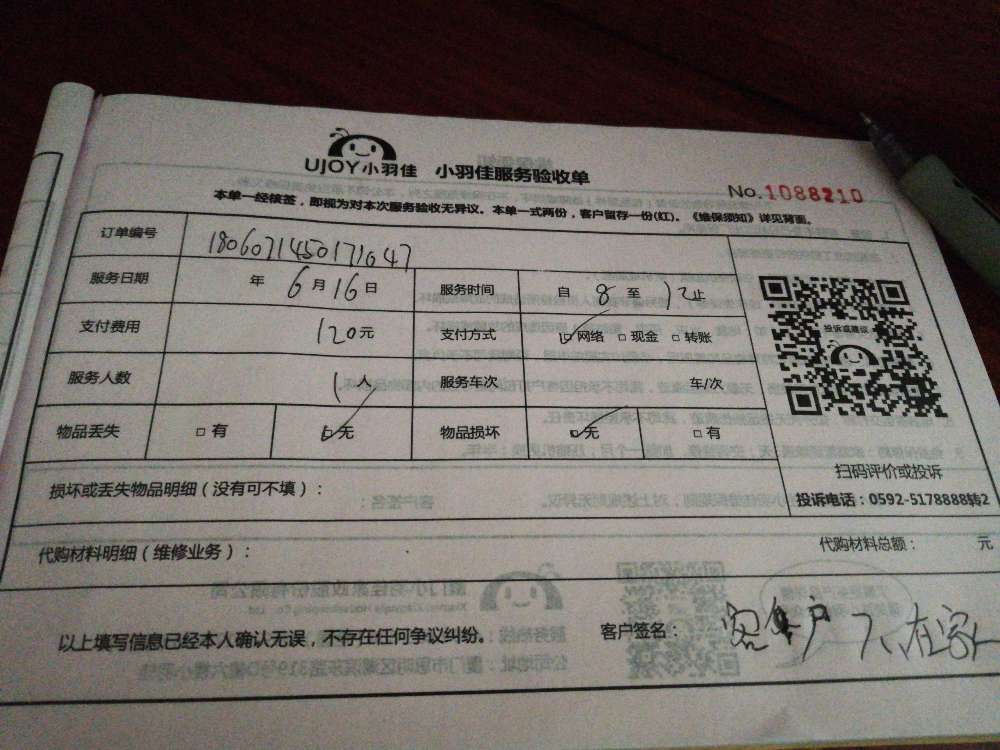 UJOY小羽佳 小羽佳服务验收单
No.1088210
本单一经核签，即视为对本次服务验收无异议。本单一式两份，客户留存一份(红)。《维保须知》详见背面。
订单编号 1806071450171047
服务日期 年 6月16日 服务时间 自 8 至 12止
支付费用 120元 支付方式 ☑网络 □现金 □转账
服务人数 1人 服务车次 车/次
物品丢失 □有 ☑无 物品损坏 ☑无 □有
投诉或建议
扫码评价或投诉
投诉电话：0592-5178888转2
损坏或丢失物品明细（没有可不填）：
代购材料明细（维修业务）： 代购材料总额： 元
以上填写信息已经本人确认无误，不存在任何争议纠纷。 客户签名： 客户不在家